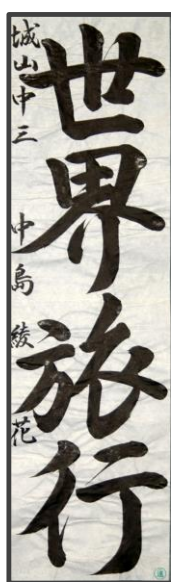 世界旅行
城山中三 中島綾花